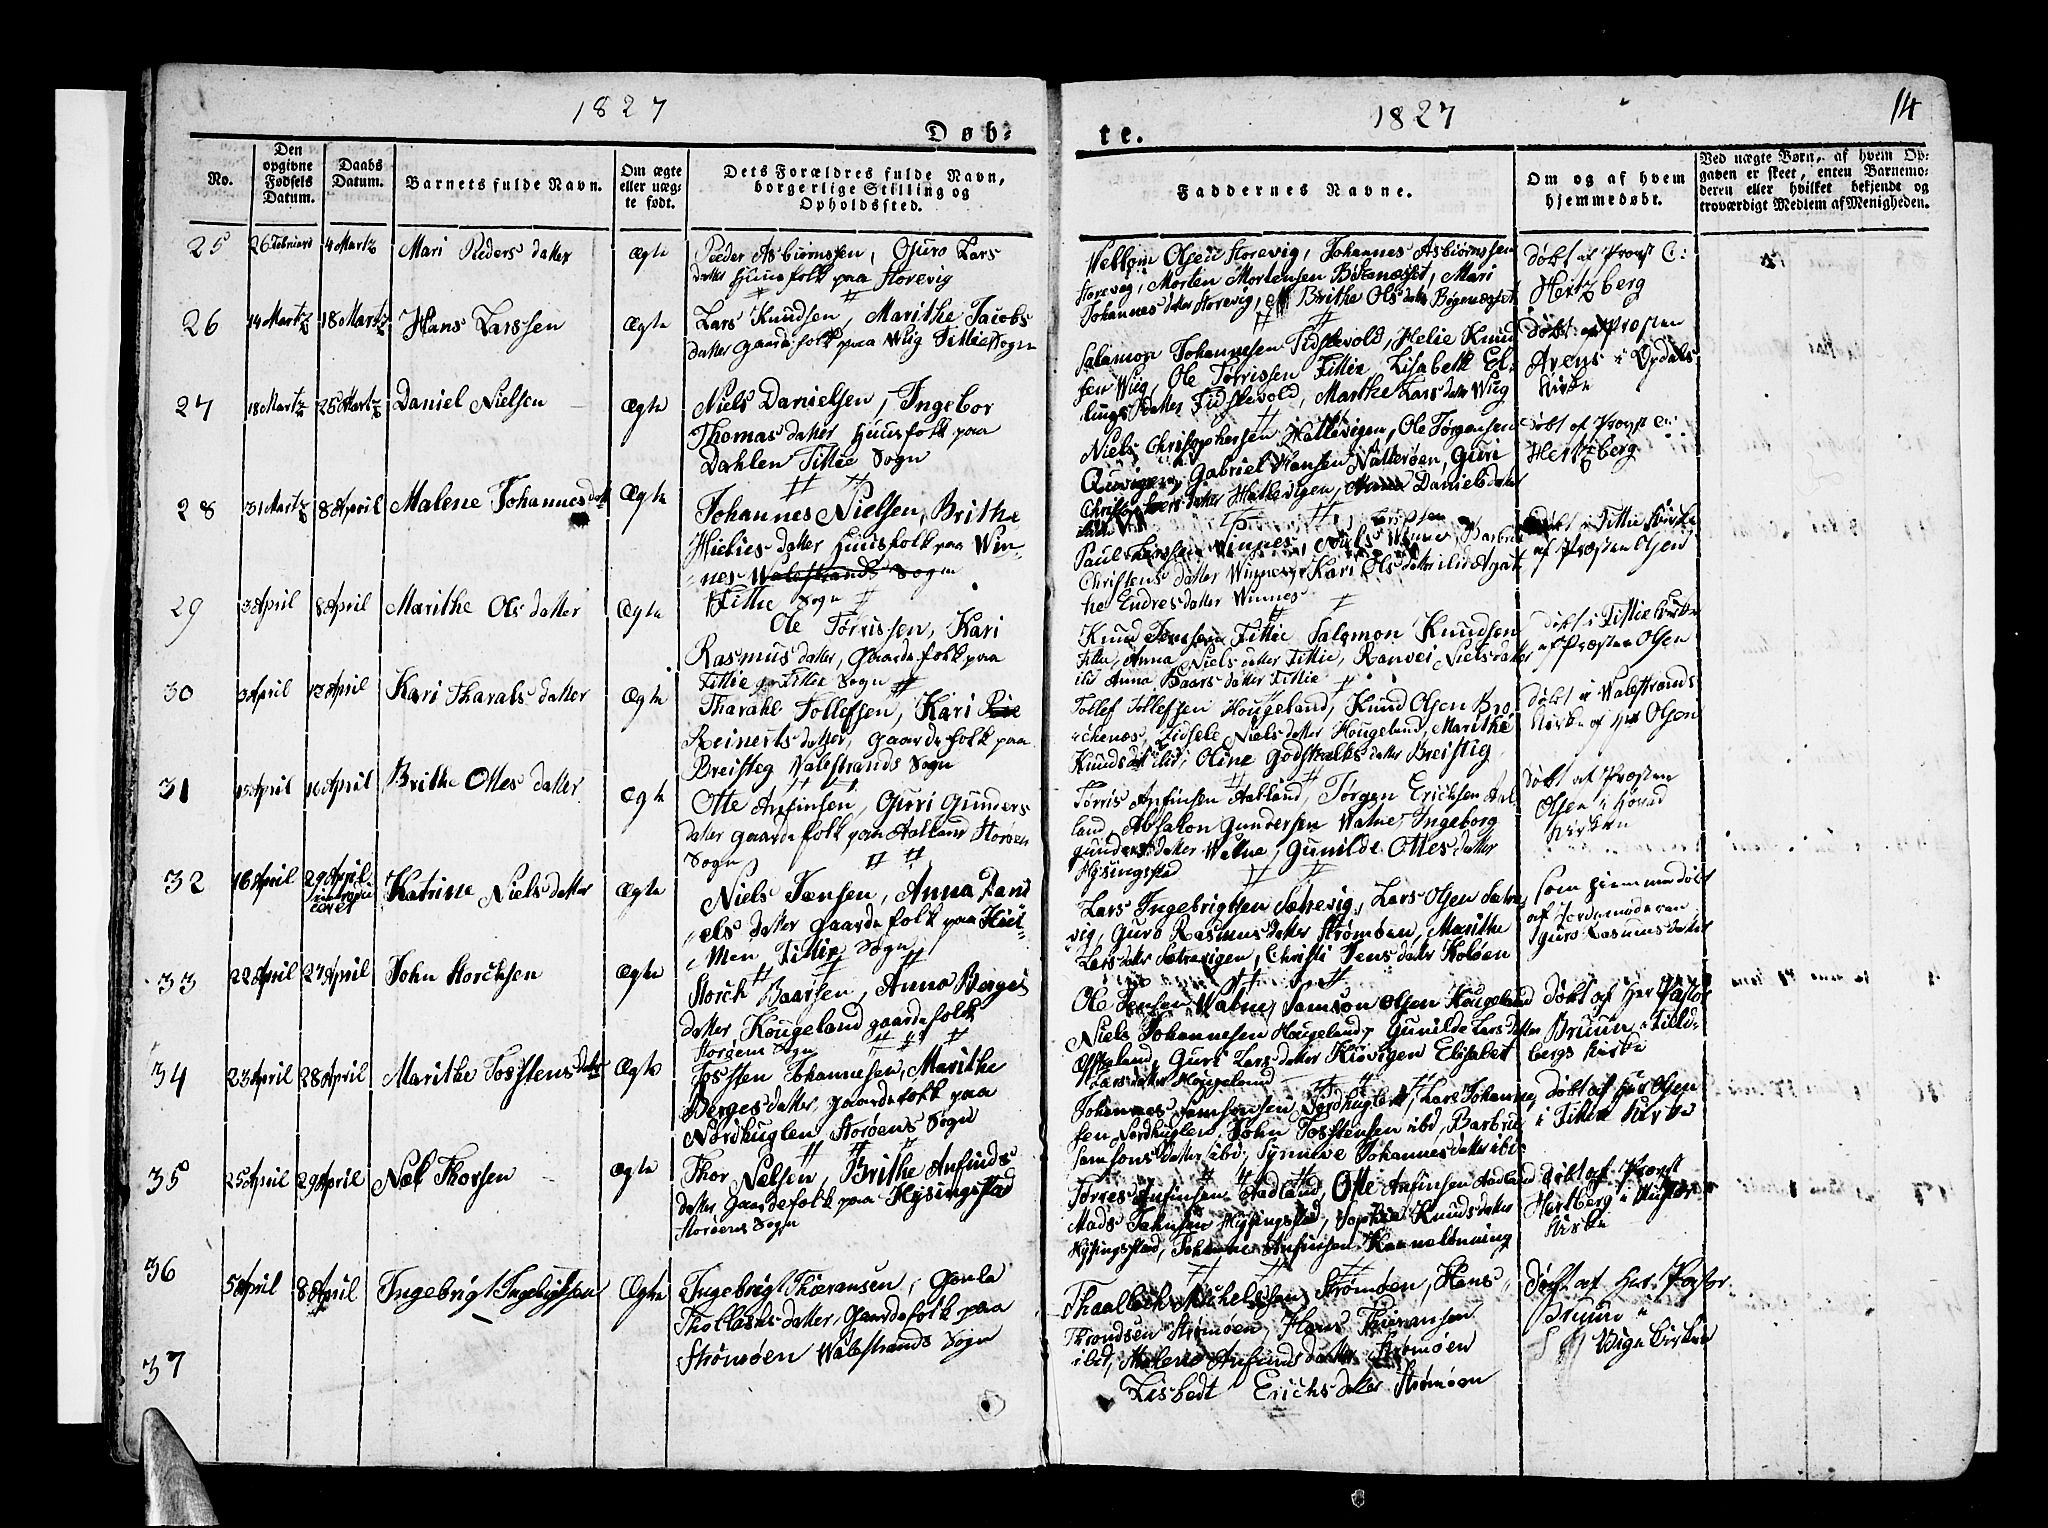 1827
1827
14
Døb-
te.
No.
Den
opgivne
Fødsels
Datum.
Daabs
Datum.
Barnets fulde Navn.
Om ægte
eller uæg-
te født.
Dets Forældres fulde Navn,
borgerlige Stilling og
Opholdssted.
Faddernes Navne.
Om og af hvem
hjemmedøbt.
Ved uægte Børn, af hvem Op-
gaven er skeet, enten Barnemo-
deren eller hvilket bekjendt og
troværdigt Medlem af Menigheden.
25
26 Februard
4 Martz
Mari Peders datter
Ægte
Peder Asbiørnssen, Guro Lars
datter Huusfolk paa Storevig
Olsen Storevig, Johannes Asbiørnssen
Storevig, Morten Mortensen Mari
Johannes datter Storevig, Brithe Ols datter
døbt af Provst C:
Hertzberg
26
14 Martz
18 Martz
Hans Larssen
Ægte
Lars Knudsen, Marithe Jacobs
datter gaardefolk paa Wiig Fittie Sogn
Salamon Johannesen Fidslevold, Helie Knud
sen Wiig, Ole Tørrissen Fittie Lisabeth El-
lings datter Fidslevold, Marthe Lars datter Wiig
døbt af Præsten
Arens i Opdals
Kirke
27
18 Martz
25 Martz
Daniel Nielsen
Ægte
Niels Danielsen, Ingebor
Thomas datter Huusfolk paa
Dahlen Fittie Sogn
Niels Christophersen Hatlevigen, Ole Jørgensen
Gabriel Hansen Nätterøen, Guri
datter Hatlevigen, Anna Daniels datter
døbt af Provst C:
Hertzberg
28
31 Martz
8 April
Malene Johannes datt
Ægte
Johannes Nielsen, Brithe
Hielies datter Huusfolk paa Win-
nes Walestrands Sogn
Fittie Sogn
Paul Larssen Winnes, Niels Winnes, Barbru
Christens datter Winnes, Kari Ols datter ibid Agat
he Endres datter Winnes
døbt i Fittie Kirke
af Præsten Olsen
29
3 April
8 April
Marithe Ols datter
Ægte
Ole Tørrissen, Kari
Rasmus datter, Gaardefolk paa
Fittie Fittie Sogn
Knud Fittie Salomon Knudsen
Fittie, Anna Niels datter Fittie, Ranvei Niels datter
ibid Anna Baars datter Fittie
døbt i Fittie Kirke
af Præsten Olsen
30
3 April
Kari Tharals datter
Ægte
Tharald Tollefsen, Kari
Reinerts datter, gaardefolk paa
Breisteg Walestrands Sogn
Tollef Tollefsen Hougeland, Knud Olsen Bro
ckenæs, Zidsele Niels datter Hougeland, Marithe
Knuds dat ibid, Oline Godskalks datter Breistig
døbt i Walestrands
Kirke af Olsen
31
15 April
16 April
Brithe Ottes datter
Ægte
Otte Anfinsen, Guri Gunders
datter gaardefolk paa Aalland Storøen
Sogn
Tørris Anfinsen Aalland, Jørgen Ericksen Aal
land, Absalon Gundersen Watne, Ingeborg
Gunders datter Watne, Gunilde Ottes datter
Hysingstad
døbt af Præsten
Olsen i
Kirken
32
16 April
29 April
Katrine Niels datter
Ægte
Niels Jensen, Anna Dani
els datter Gaardefolk paa Hiel-
men Fittie Sogn
Lars Ingebrigtsen Sætrevig, Lars Olsen Sætre
vig, Guro Rasmus datter Strømøen, Marithe
Lars datter Sætrevigen, Christi Jens datter Holøen
som hiemmedøbt
af Jordemoderen
Guro Rasmus datter
33
22 April
27 April
John Storchsen
Ægte
Storch Baarsen, Anna Berges
datter Hougeland gaardefolk
Storøens Sogn
Ole Jensen Watne, Samson Olsen Hougeland
Niels Johannesen Hougeland, Gunilde Lars datter
Guri Lars datter Kiøvigen Elisabet
Lars datter Hougeland
Døbt af Her Pastor
Bruun i Field-
bergs Kirke
34
23 April
28 April
Marithe Tosstens datter
Ægte
Tossten Johannesen, Marithe
Berges datter, gaardefolk paa
Nordhuglen Storøens Sogn
Johannes Samsonsen Nordhuglen, Lars Johanne
sen Nordhuglen, John Tosstensen ibd, Barbru
Samsons datter ibd, Synneve Johannes datter ibd
Døbt af Her Olsen
i Fitie Kirke
35
25 April
29 April
Næl Thorsen
Ægte
Thor Nælsen, Brithe Anfinds
datter Gaardefolk paa Hysingstad
Storøens Sogn
Tørres Anfinsen Aadland, Otte Anfinsen Aadland
Mads Jahnsen Hysingstad, Sophie Knuds datter
Hysingstad, Johanne Anfinsen
Døbt af Provst
Hertberg i
Kirke
36
5 April
8 April
Ingebrigt Ingebrigtsen
Ægte
Ingebrigt Thoransen, Gonla
datter, Gaardefolk paa
Strømøen Walestrands Sogn
Mikelsen Strømøen, Hans
Throndsen Strømøen, Hans Thoransen
ibid, Malene Anfinds datter Strømøen
Lisbedt Erichs datter Strømøen
Døbt af Her. Pastor
Bruun i
Kirken
37